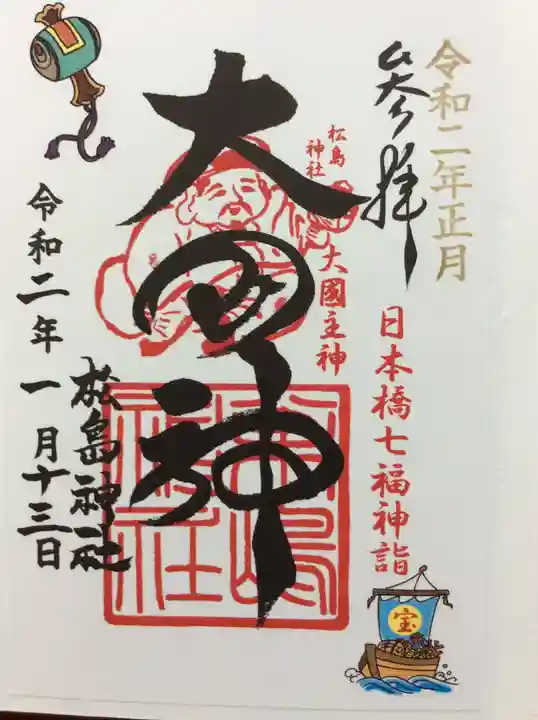 令和二年正月
参拝
日本橋七福神詣
宝
松島
神社
大國主神
大国神
松島神社
松島神社
令和二年一月十三日